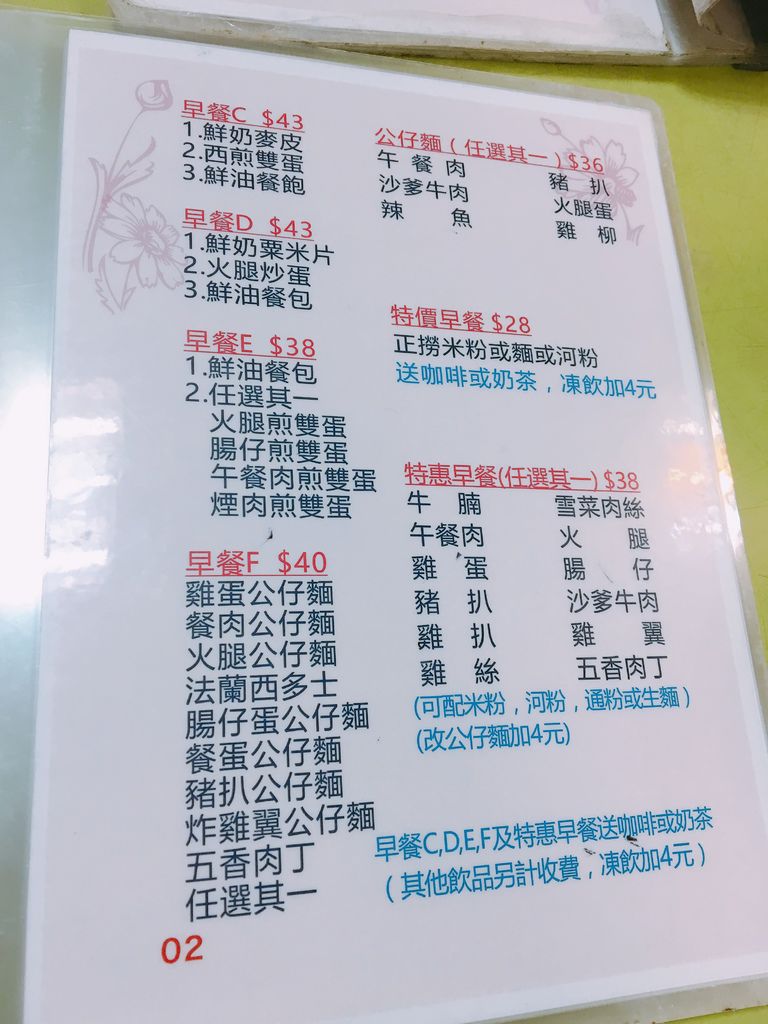 早餐C $43
1.鮮奶麥皮
2.西煎雙蛋
3.鮮油餐飽
早餐D $43
1.鮮奶粟米片
2.火腿炒蛋
3.鮮油餐包
早餐E $38
1.鮮油餐包
2.任選其一
火腿煎雙蛋
腸仔煎雙蛋
午餐肉煎雙蛋
煙肉煎雙蛋
早餐F $40
雞蛋公仔麵
餐肉公仔麵
火腿公仔麵
法蘭西多士
腸仔蛋公仔麵
餐蛋公仔麵
豬扒公仔麵
炸雞翼公仔麵
五香肉丁
任選其一
02
公仔麵（任選其一）$36
午餐肉 豬扒
沙爹牛肉 火腿蛋
辣魚 雞柳
特價早餐 $28
正撈米粉或麵或河粉
送咖啡或奶茶，凍飲加4元
特惠早餐(任選其一) $38
牛腩 雪菜肉絲
午餐肉 火腿
雞蛋 腸仔
豬扒 沙爹牛肉
雞扒 雞翼
雞絲 五香肉丁
(可配米粉，河粉，通粉或生麵）
(改公仔麵加4元)
早餐C,D,E,F及特惠早餐送咖啡或奶茶
（其他飲品另計收費，凍飲加4元）